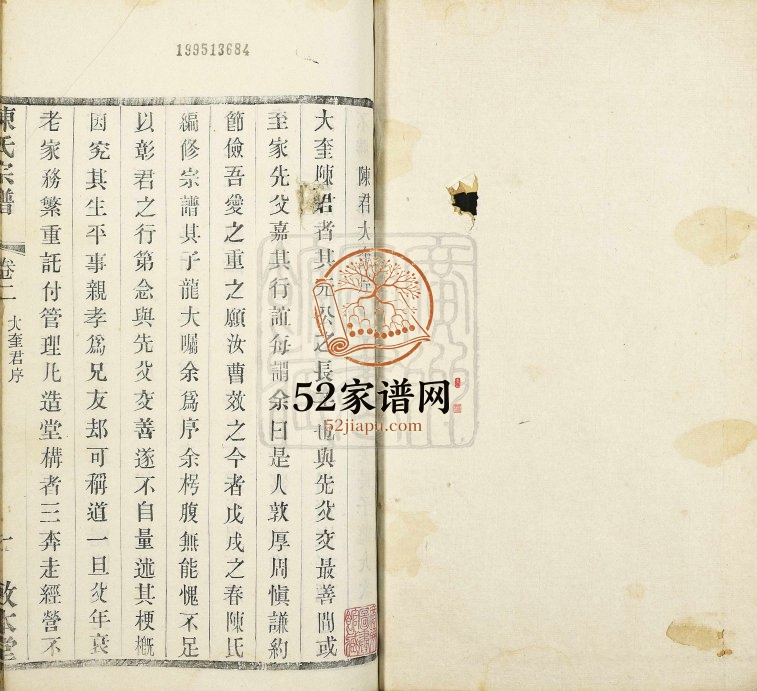 199513684
陳君大
大奎陳君者其元公之長也與先父交最善間或
至家先父嘉其行誼每謂余曰是人敦厚周慎謙約
節儉吾愛之重之願汝曹效之今者戊戌之春陳氏
編修宗譜其子龍大囑余爲序余楞腹無能愧不足
以彰君之行第念與先父交善遂不自量述其梗概
因究其生平事親孝爲兄友却可稱道一旦父年衰
老家務繁重託付管理凡造堂構者三奔走經營不
陳氏宗譜
卷二
大奎君序
敦本堂
52家谱网
52jiapu.com